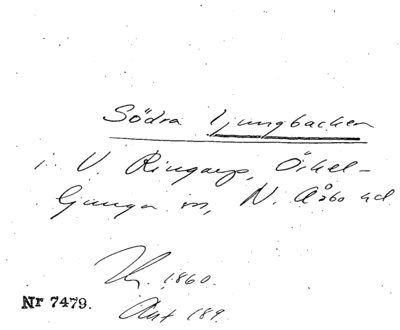 Södra Ljungbacken
i V. Ringarp, Örkel-
ljunga sn, N. Åsbo hd
1860.
Nr 7479.
Ant 189.